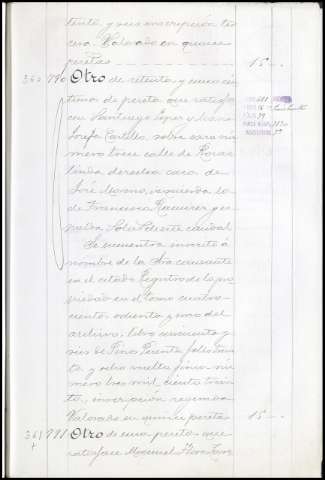 tenta, y seis inscripción ter
cera. Valorado en quince
pesetas 15 -
360 790 Otro de setenta y cinco cen
timos de peseta que satisfa
cen Santiago Lopez y Maria
Josefa Castillo, sobre casa nu
mero trece calle de Rosa
linda, derecha casa de
José Moreno, izquierda la
de Francisca Ramirez y es
palda,
Se encuentra inscrito á
nombre de la Sra causante
en el citado Registro de la pro
piedad en el tomo cuatro-
cientos ochenta y uno del
archivo, libro cincuenta y
seis de Pino, folio
ta y ocho vuelto finca nu
mero tres mil ciento trein
ta, inscripción segunda
Valorado en quince pesetas 15 -
361 791 Otro de una peseta que
satisface Manuel